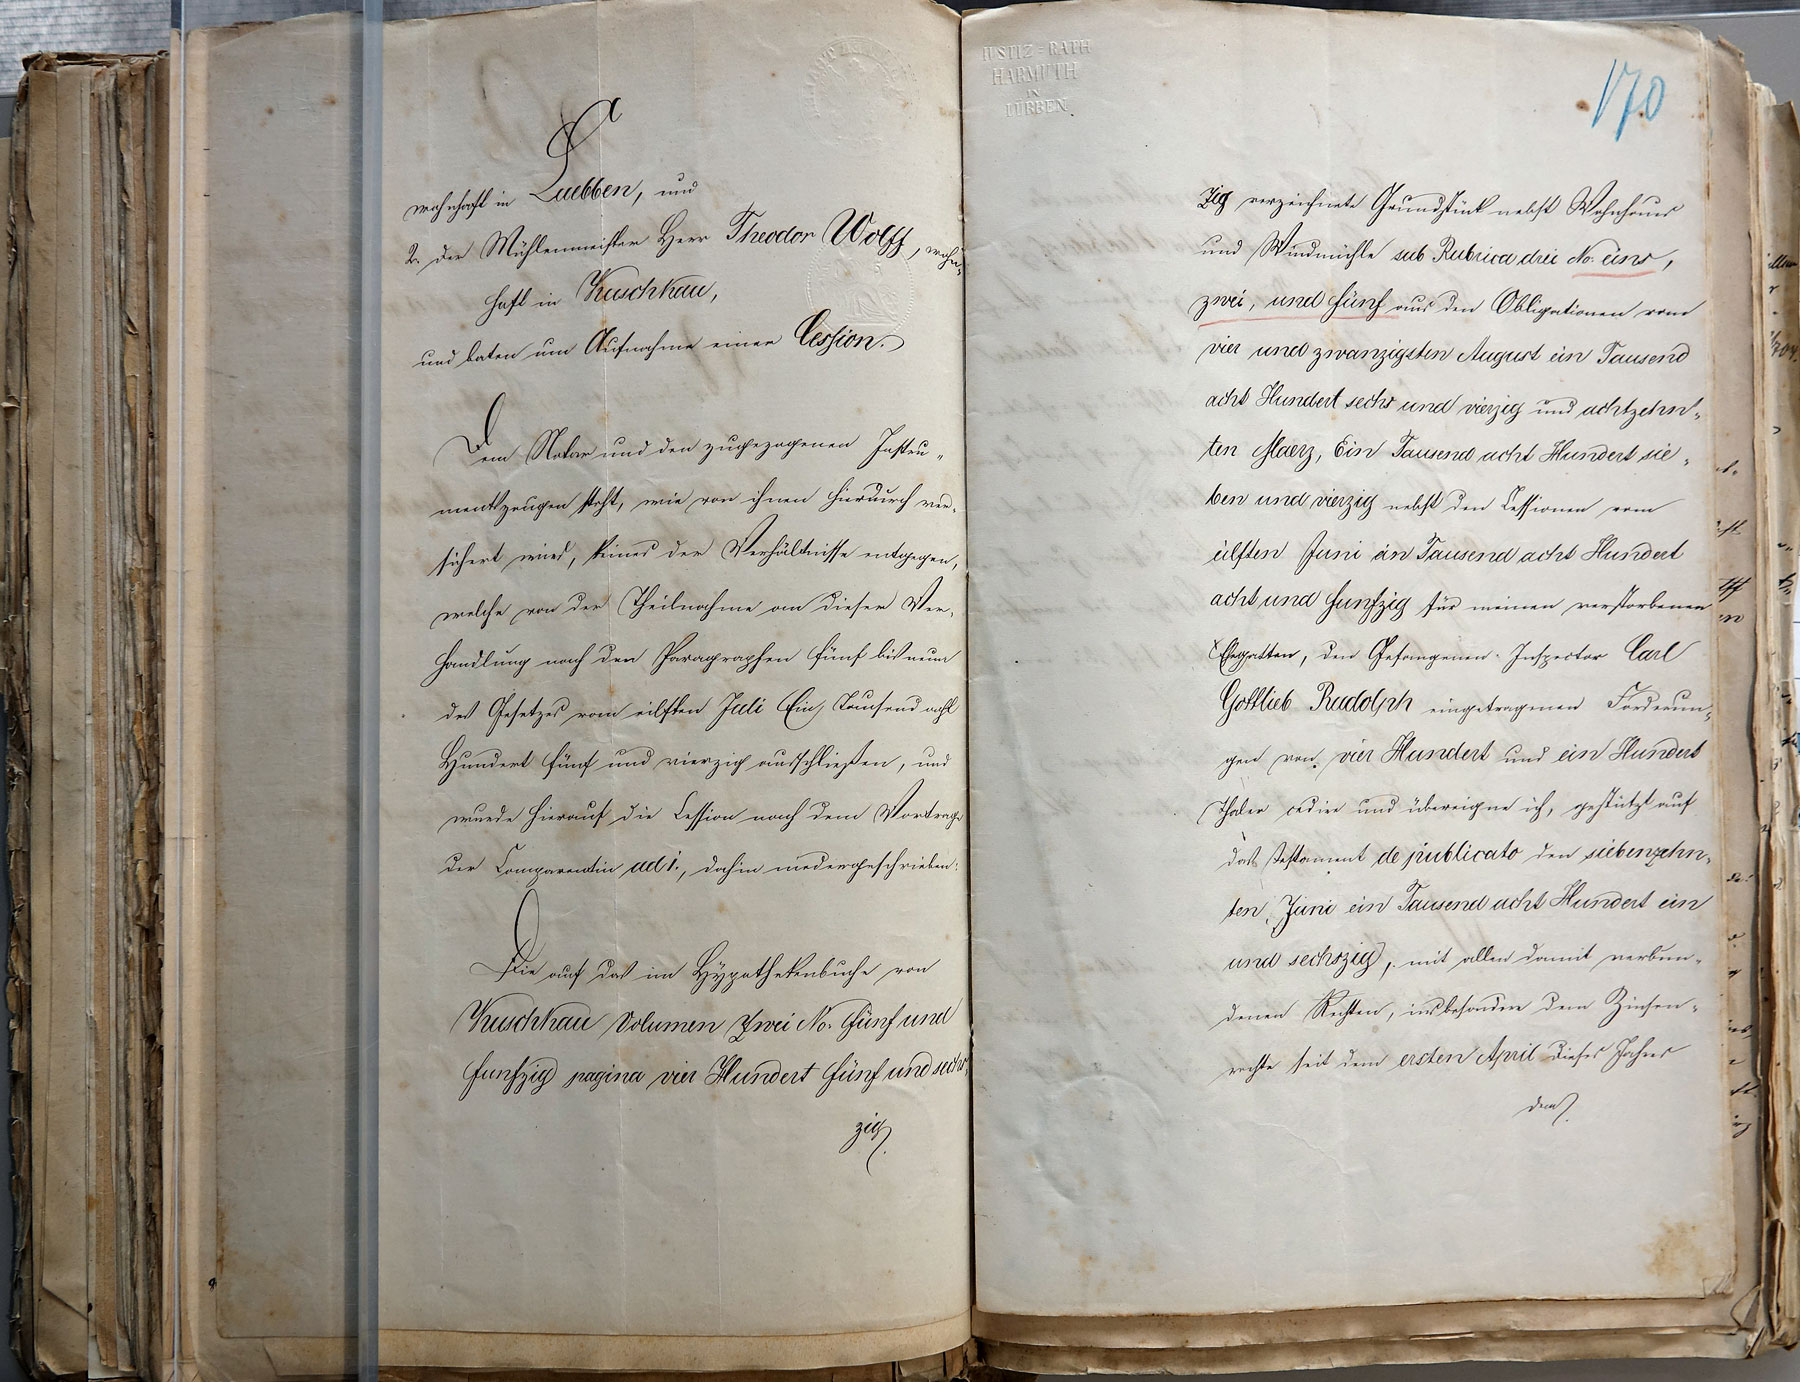 wohnhaft in Luebben, und
2. der Mühlenmeister Herr Theodor Wolff, wohn-
haft in Kuschkau,
und baten um Aufnahme einer Cession.
Dem Notar und den zugezogenen Instru-
mentszeugen steht, wie von ihnen hierdurch ver-
sichert wird, keines der Verhältnisse entgegen,
welche von der Theilnahme an dieser Ver-
handlung nach den Paragraphen fünf bis neun
des Gesetzes vom eilften Juli Ein Tausend acht
Hundert fünf und vierzig ausschließen, und
wurde hierauf die Cession nach dem Vortrage
der Comparentin ad 1., dahin niedergeschrieben:
Die auf das im Hypothekenbuche von
Kuschkau Volumen zwei No. fünf und
funfzig pagina vier Hundert fünf und sechs-
zig
JUSTIZ=RATH
HARMUTH
IN
LÜBBEN
170
zig verzeichnete Grundstück nebst Wohnhaus
und Windmühle sub Rubrica drei No. eins,
zwei, und fünf aus den Obligationen vom
vier und zwanzigsten August ein Tausend
acht Hundert sechs und vierzig und achtzehn-
ten Maerz, Ein Tausend acht Hundert sie-
ben und vierzig nebst den Cessionen vom
eilften Juni ein Tausend acht Hundert
acht und funfzig für meinen verstorbenen
Ehegatten, den Gefangenen-Inspector Carl
Gottlieb Rudolph eingetragenen Forderun-
gen von vier Hundert und ein Hundert
Thaler cedire und übereigne ich, gestützt auf
das Testament de publicato den siebenzehn-
ten Juni ein Tausend acht Hundert ein
und sechszig, mit allen damit verbun-
denen Rechten, insbesondere dem Zinsen-
rechte seit dem ersten April dieses Jahres
dem